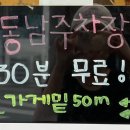 동남주차장
30분 무료!
가게밑 50m